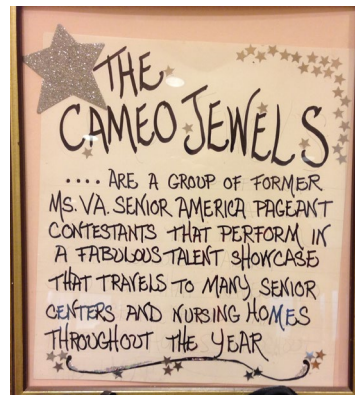 THE
CAMEO JEWELS
.... ARE A GROUP OF FORMER
MS. VA. SENIOR AMERICA PAGEANT
CONTESTANTS THAT PERFORM IN
A FABULOUS TALENT SHOWCASE
THAT TRAVELS TO MANY SENIOR
CENTERS AND NURSING HOMES
THROUGHOUT THE YEAR